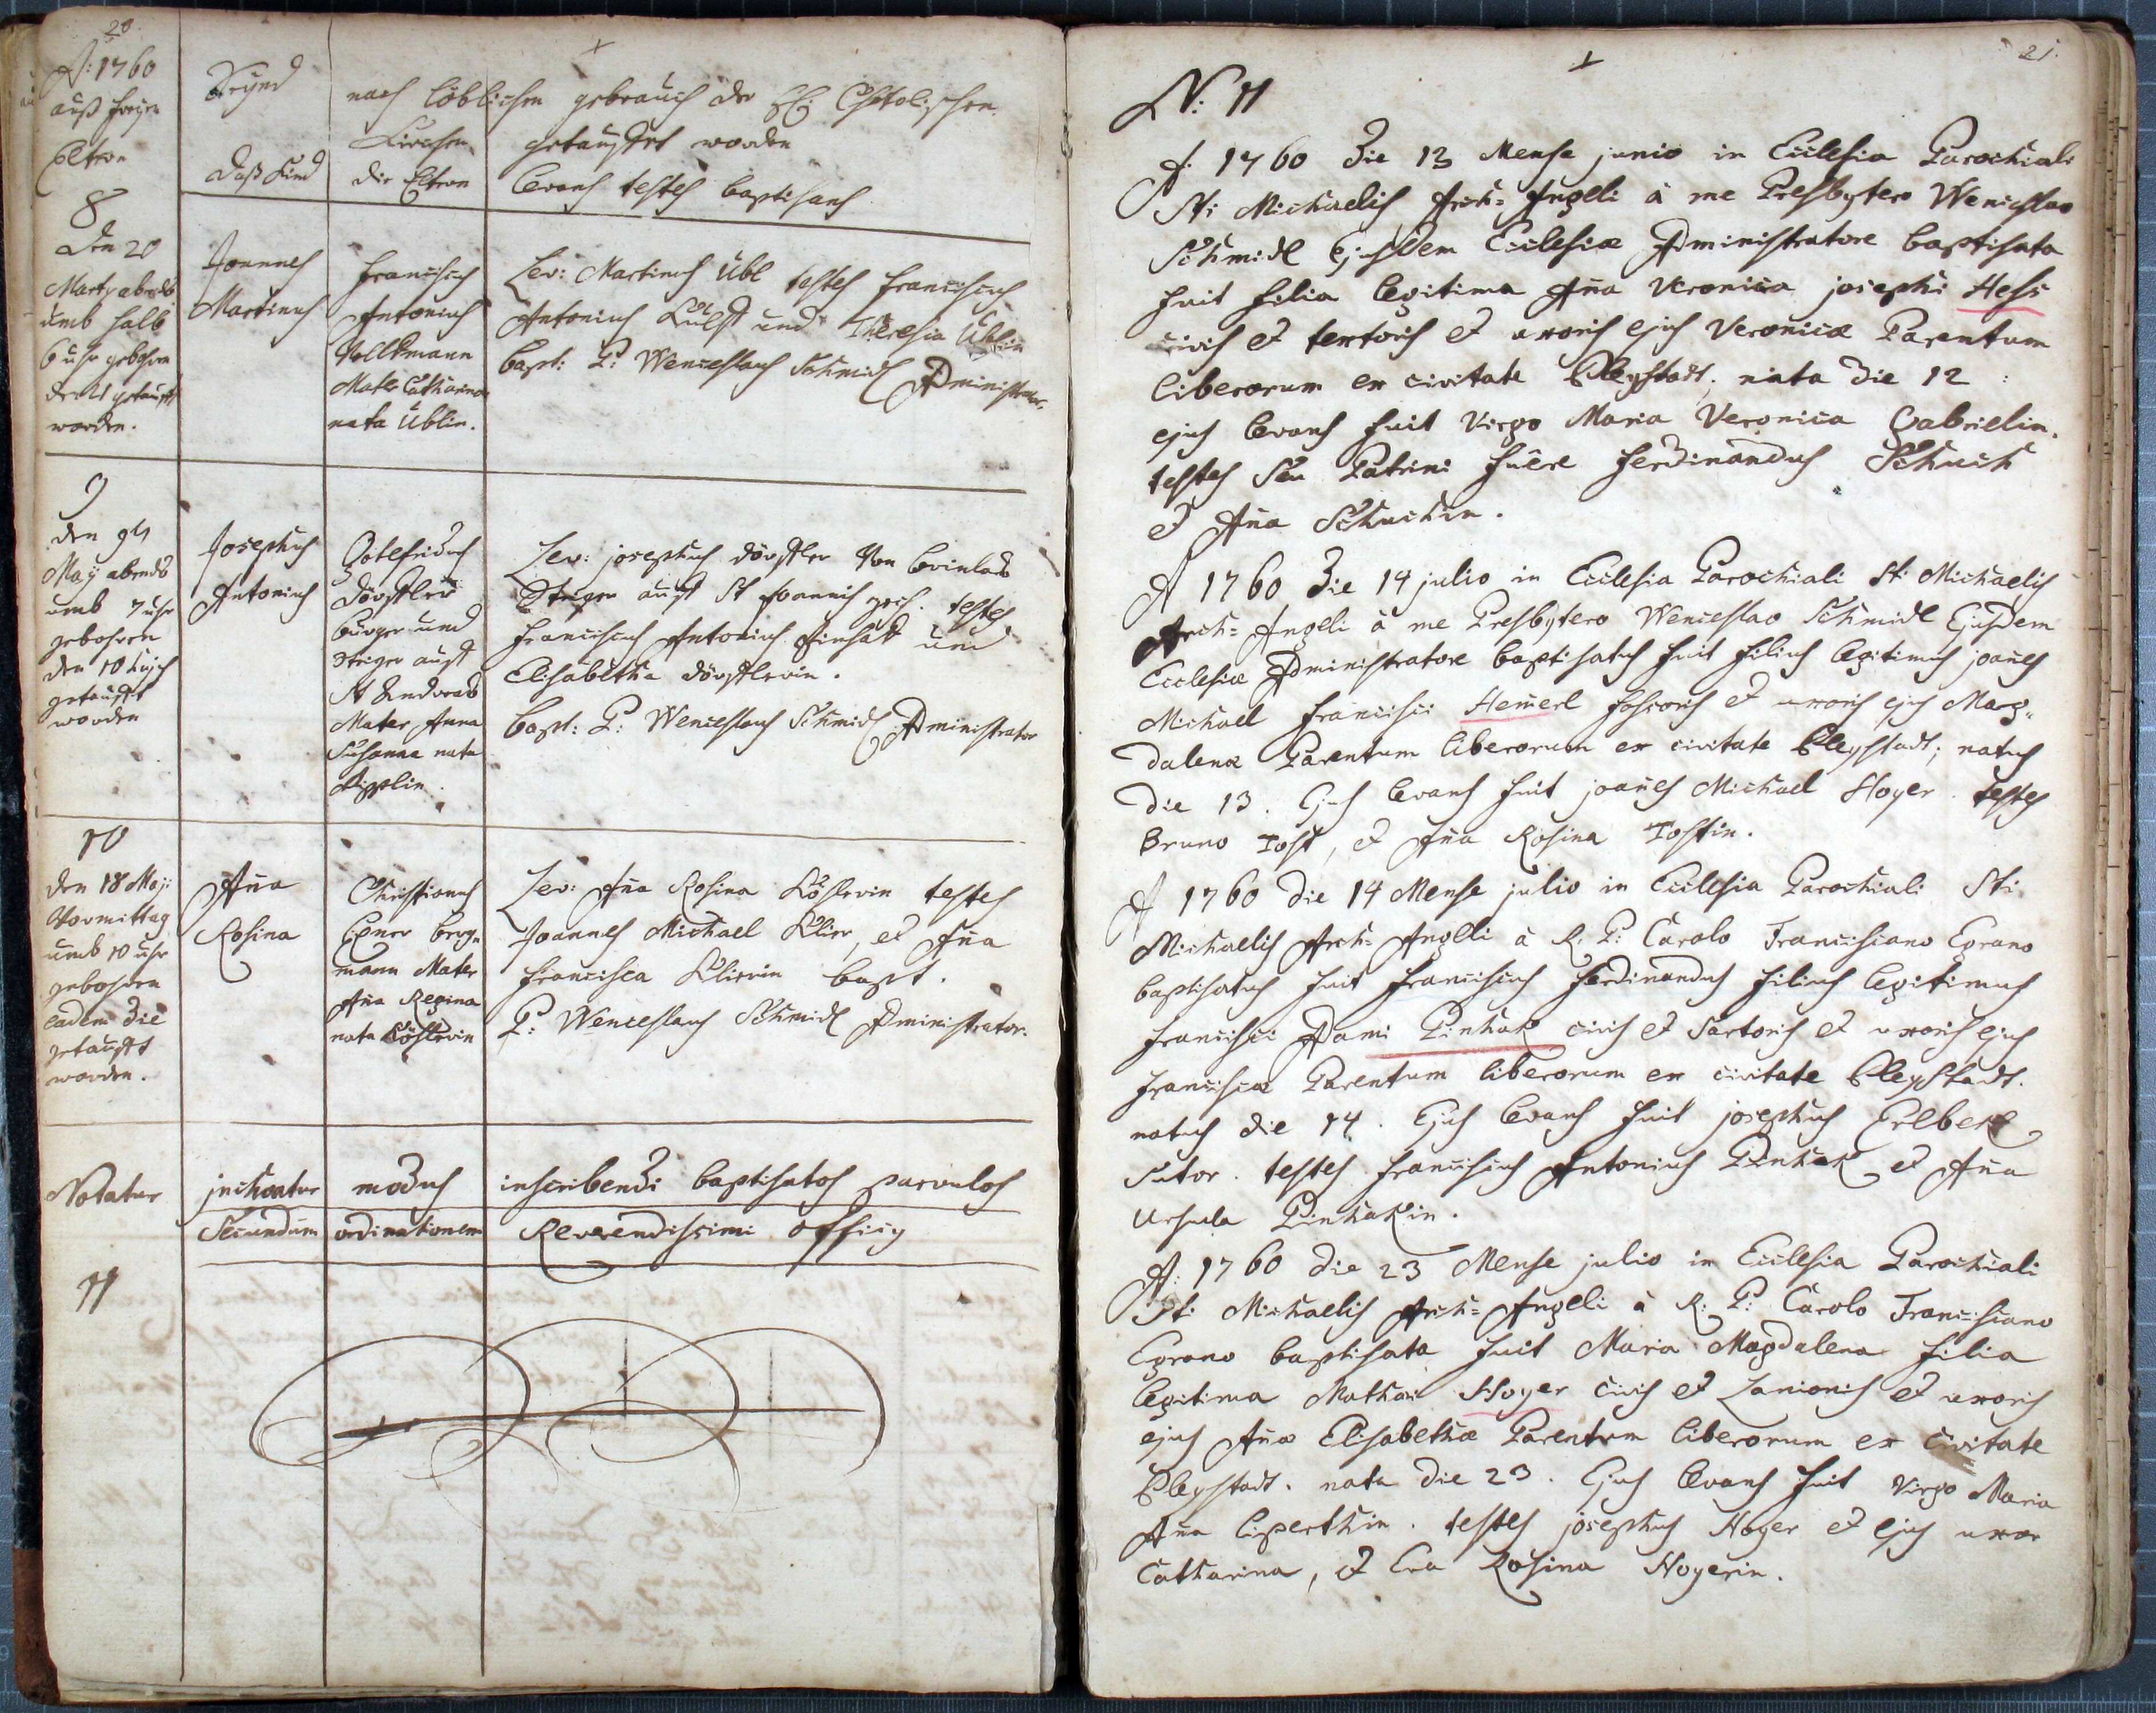 20.
A: 1760
auß freyen
Eltern
Seynd nach löblichen gebrauch der Chatolischen
Kirchen getauffet worden
Daß Kind die Eltern levans testes baptisans
8
den 20
Marty abends
umb halb
6 uhr gebohren
den 21 getaufft
worden.
Joannes
Martinus
Franciscus
Antonius
Volkmann
Mater Catharina
nata Üblin.
Lev: Martinus Übl testes Franciscus
Antonius und Theresia Üblin
bapt: P: Wenceslaus Schmidl Administrator.
9
den 9ten
May abends
umb 7 uhr
gebohren
den 10 hujus
getaufft
worden
Josephus
Antonius
Gotefridus
Dörfler
burger und
Steiger auff
St Andreas
Mater Anna
Susanna nata
Lev: josephus Dörfler Von
Steiger auff St Joannis testes
Franciscus Antonius und
Elisabetha Dörflerin.
bapt: P: Wenceslaus Schmidl Administrator
10
den 18 Maji
Vormittag
umb 10 uhr
gebohren
eadem die
getaufft
worden.
Aña
Rosina
Christianus
Exner berg=
mann Mater
Aña Regina
nata Kößlerin
Lev: Aña Rosina Kößlerin testes
Joannes Michael Klier, et Aña
Francisca Klierin bapt.
P: Wenceslaus Schmidl Administrator.
Notatur jnchoatur modus inscribendi baptisatos parvulos
Secundum ordinationem Reverendissimi officy
11
21.
N: 11
A: 1760 Die 13 Mense junio in Ecclesia Parochiali
Sti Michaelis Arch= Angeli à me Presbytero Wenceslao
Schmidl Ejusdem Ecclesiæ Administratore baptisata
fuit filia legitima Aña Veronica josephi Hess
civis et textoris et uxoris ejus Veronicæ Parentum
liberorum ex civitate Bleystadt, nata die 12:
ejus levans fuit Virgo Maria Veronica Gabrielin.
testes seu Patrini fuere Ferdinandus Schuch
et Aña Schuchin.
A 1760 Die 14 julio in Ecclesia Parochiali Sti Michaelis
Arch= Angeli à me Presbytero Wenceslao Schmidl Ejusdem
Ecclesiæ Administratore baptisatus fuit filius legitimus joañes
Michael Francisci Hem̄erl fossoris et uxoris ejus Mag=
dalenæ Parentum liberorum ex civitate Bleystadt; natus
die 13. Ejus levans fuit joañes Michael Hoyer. testes
Bruno Tost, et Aña Rosina Tostin.
A 1760 die 14 Mense julio in Ecclesia Parochiali Sti
Michaelis Arch= Angeli à R. P: Carolo Franciscano Egrano
baptisatus fuit Franciscus Ferdinandus filius legitimus
Francisci Adami Pinhak civis et Sartoris et uxoris ejus
Franciscæ Parentum liberorum ex civitate Bleystadt.
natus die 14. Ejus levans fuit josephus Erlbek
sutor. testes Franciscus Antonius Pinhak et Aña
Ursula Pinhakin.
A: 1760 die 23 Mense julio in Ecclesia Parochiali
Sti Michaelis Arch= Angeli à R: P: Carolo Franciscano
Egrano baptisata fuit Maria Magdalena filia
legitima Mathæi Hoyer civis et Lanionis et uxoris
ejus Añæ Elisabethæ Parentum liberorum ex civitate
Bleystadt. nata die 23. Ejus levans fuit Virgo Maria
Aña Liperthin. testes josephus Hoyer et ejus uxor
Catharina, et Eva Rosina Hoyerin.